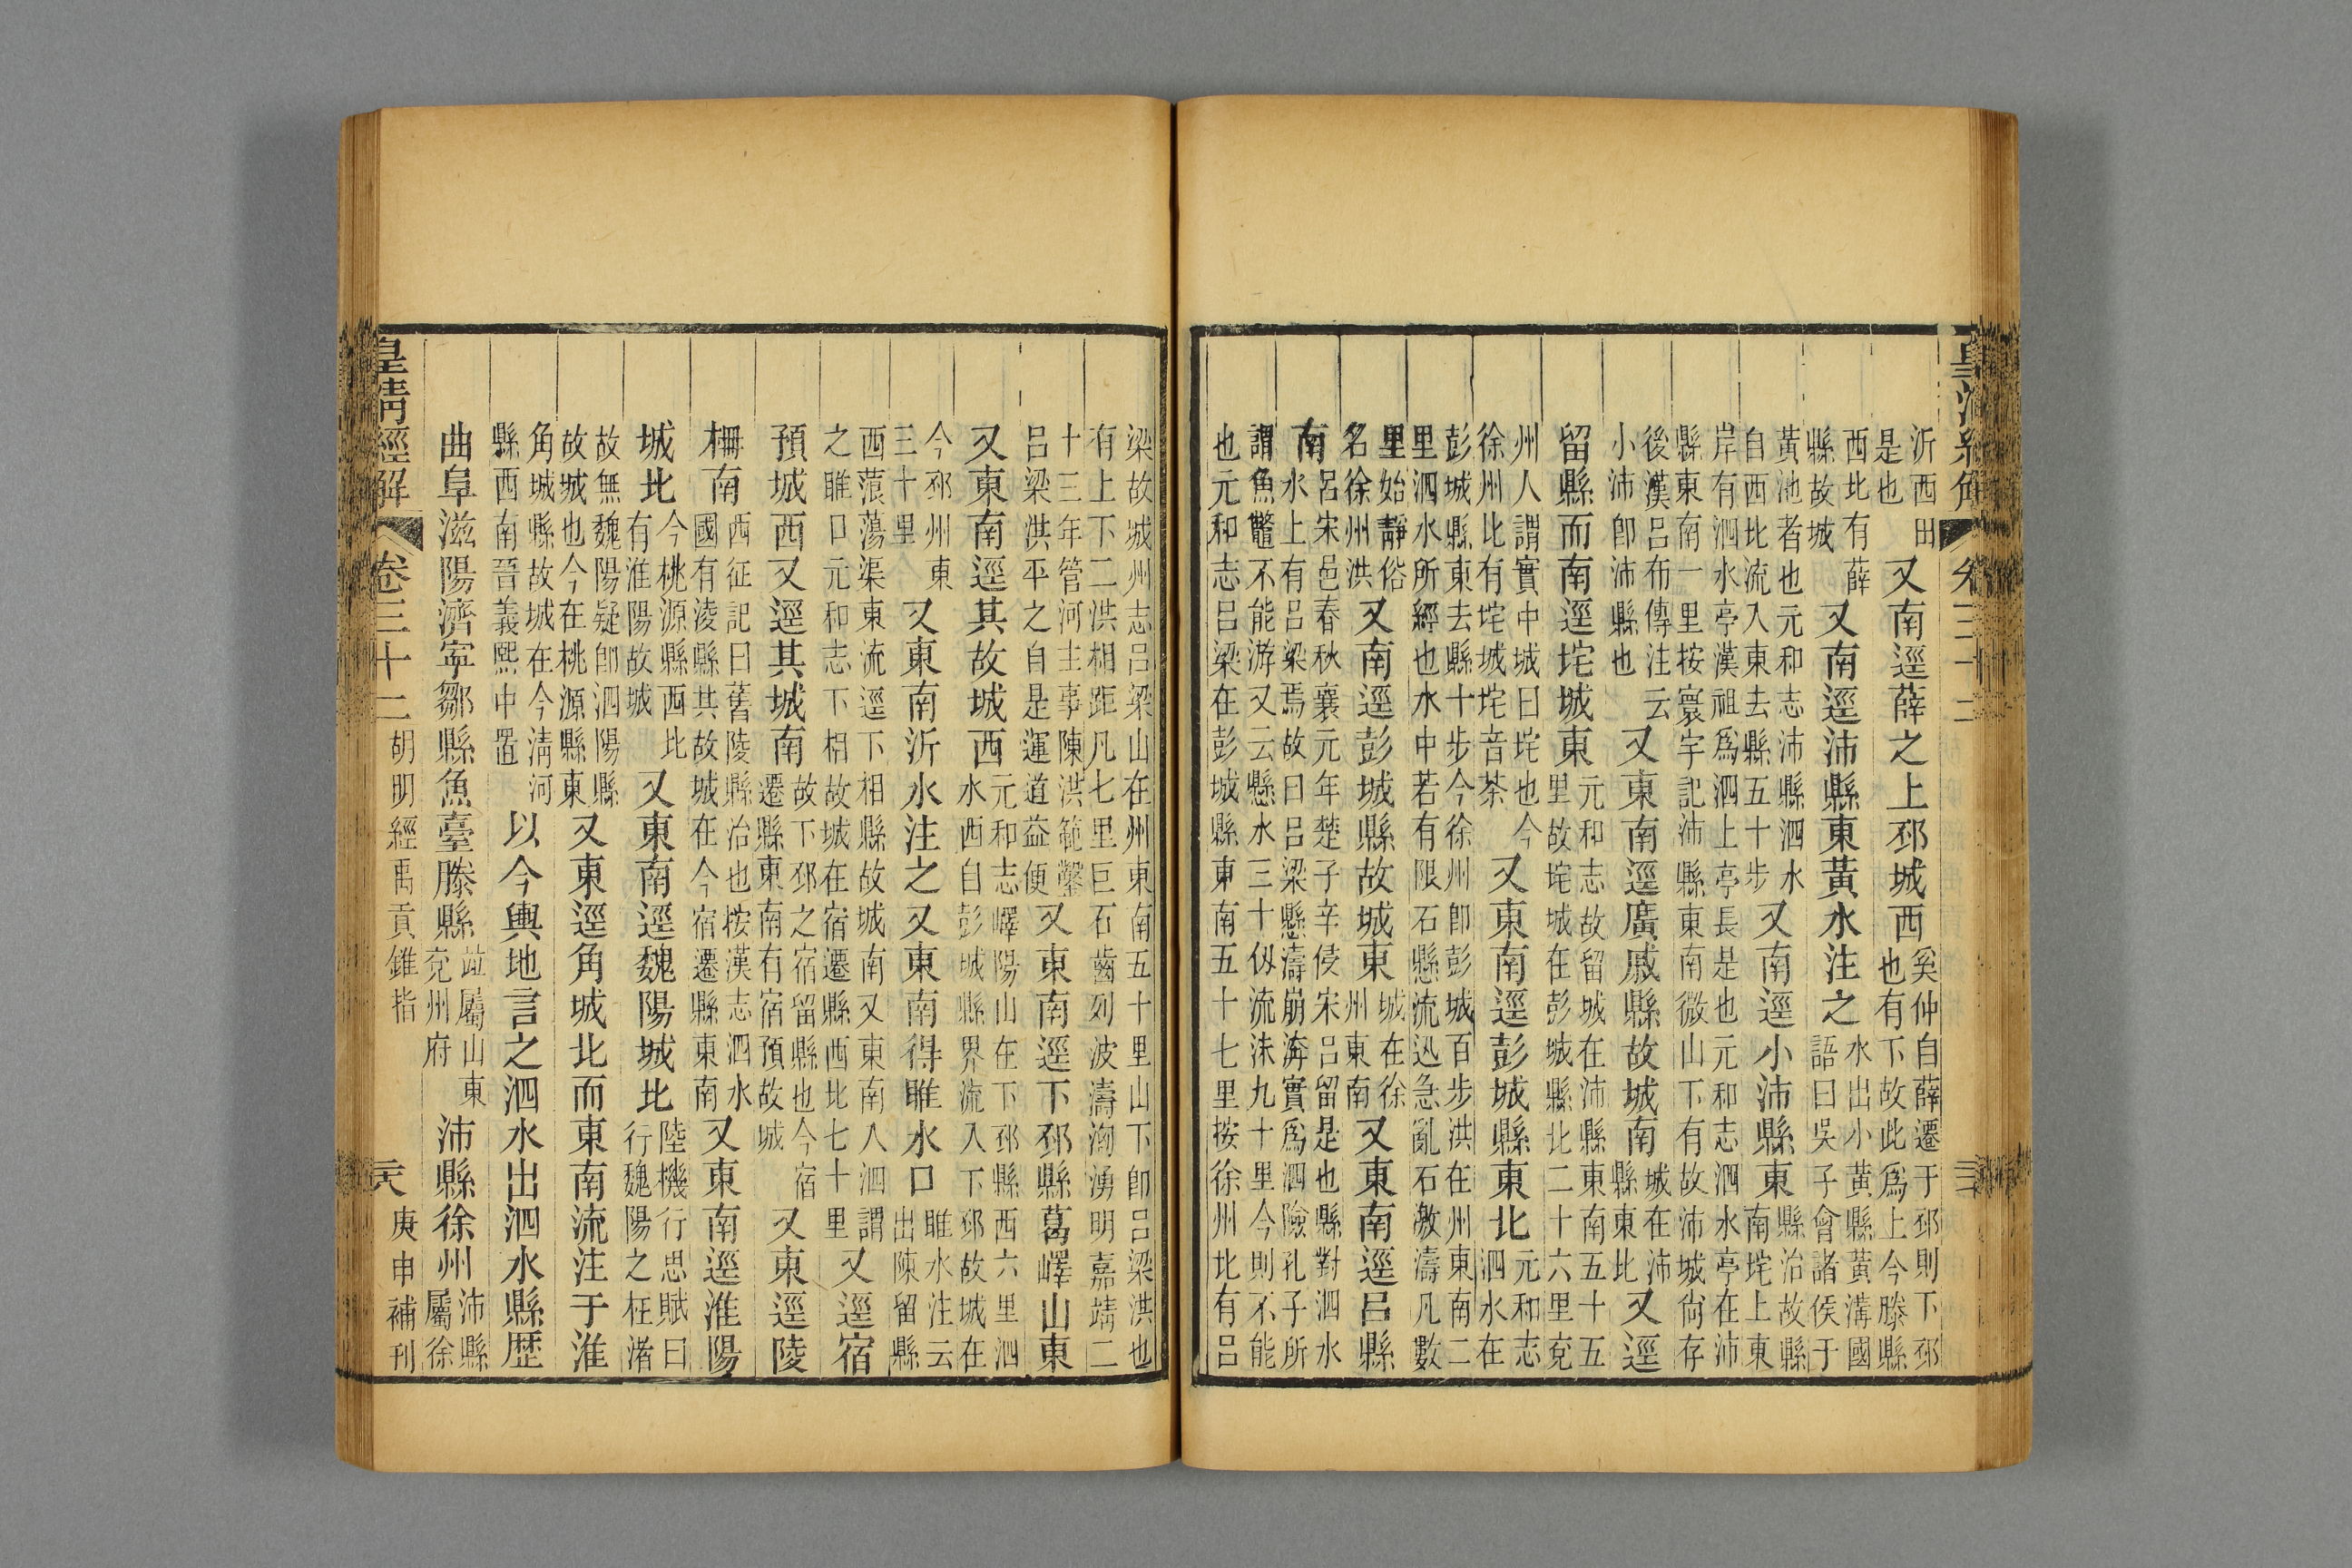 沂西田是也又南逕薛之上邳城西奚仲自薛遷于邳則下邳也有下故此爲上今滕縣
西北有薛縣故城又南逕沛縣東黃水注之水出小黃縣黃溝國語曰吳子會諸侯于
黃池者也元和志沛縣泗水自西北流入東去縣五十步又南逕小沛縣東縣治故縣南垞上東
岸有泗水亭漢祖爲泗上亭長是也元和志泗水亭在沛縣東南一里按寰宇記沛縣東南微山下有故沛城尙存
後漢呂布傳注云小沛卽沛縣也又東南逕廣戚縣故城南城在沛縣東北又逕
留縣而南逕垞城東元和志故留城在沛縣東南五十五里故垞城在彭城縣北二十六里兗
州人謂實中城曰垞也今徐州北有垞城垞音茶又東南逕彭城縣東北元和志泗水在
彭城縣東去縣十步今徐州卽彭城百步洪在州東南二里泗水所經也水中若有限石懸流迅急亂石激濤凡數
里始靜俗名徐州洪又南逕彭城縣故城東城在徐州東南又東南逕呂縣
南呂宋邑春秋襄元年楚子辛侵宋呂留是也縣對泗水水上有呂梁焉故曰呂梁懸濤崩渀實爲泗險孔子所
謂魚鼈不能游又云懸水三十仭流沬九十里今則不能也元和志呂梁在彭城縣東南五十七里按徐州北有呂
梁故城州志呂梁山在州東南五十里山下卽呂梁洪也有上下二洪相距凡七里巨石齒列波濤洶湧明嘉靖二
十三年管河主事陳洪範鑿呂梁洪平之自是運道益便又東南逕下邳縣葛嶧山東
又東南逕其故城西元和志嶧陽山在下邳縣西六里泗水西自彭城縣界流入下邳故城在
今邳州東三十里又東南沂水注之又東南得睢水口睢水注云出陳留縣
西蒗蕩渠東流逕下相縣故城南又東南入泗謂之睢口元和志下相故城在宿遷縣西北七十里又逕宿
預城西又逕其城南故下邳之宿留縣也今宿遷縣東南有宿預故城又東逕陵
柵南西征記曰舊陵縣治也按漢志泗水國有淩縣其故城在今宿遷縣東南又東南逕淮陽
城北今桃源縣西北有淮陽故城又東南逕魏陽城北陸機行思賦曰行魏陽之枉渚
故無魏陽疑卽泗陽縣故城也今在桃源縣東又東逕角城北而東南流注于淮
角城縣故城在今淸河縣西南晉義熙中置以今輿地言之泗水出泗水縣歷
曲阜滋陽濟寧鄒縣魚臺滕縣竝屬山東兗州府沛縣徐州沛縣屬徐
皇清經解 卷三十二 胡明經禹貢錐指 庚申補刊